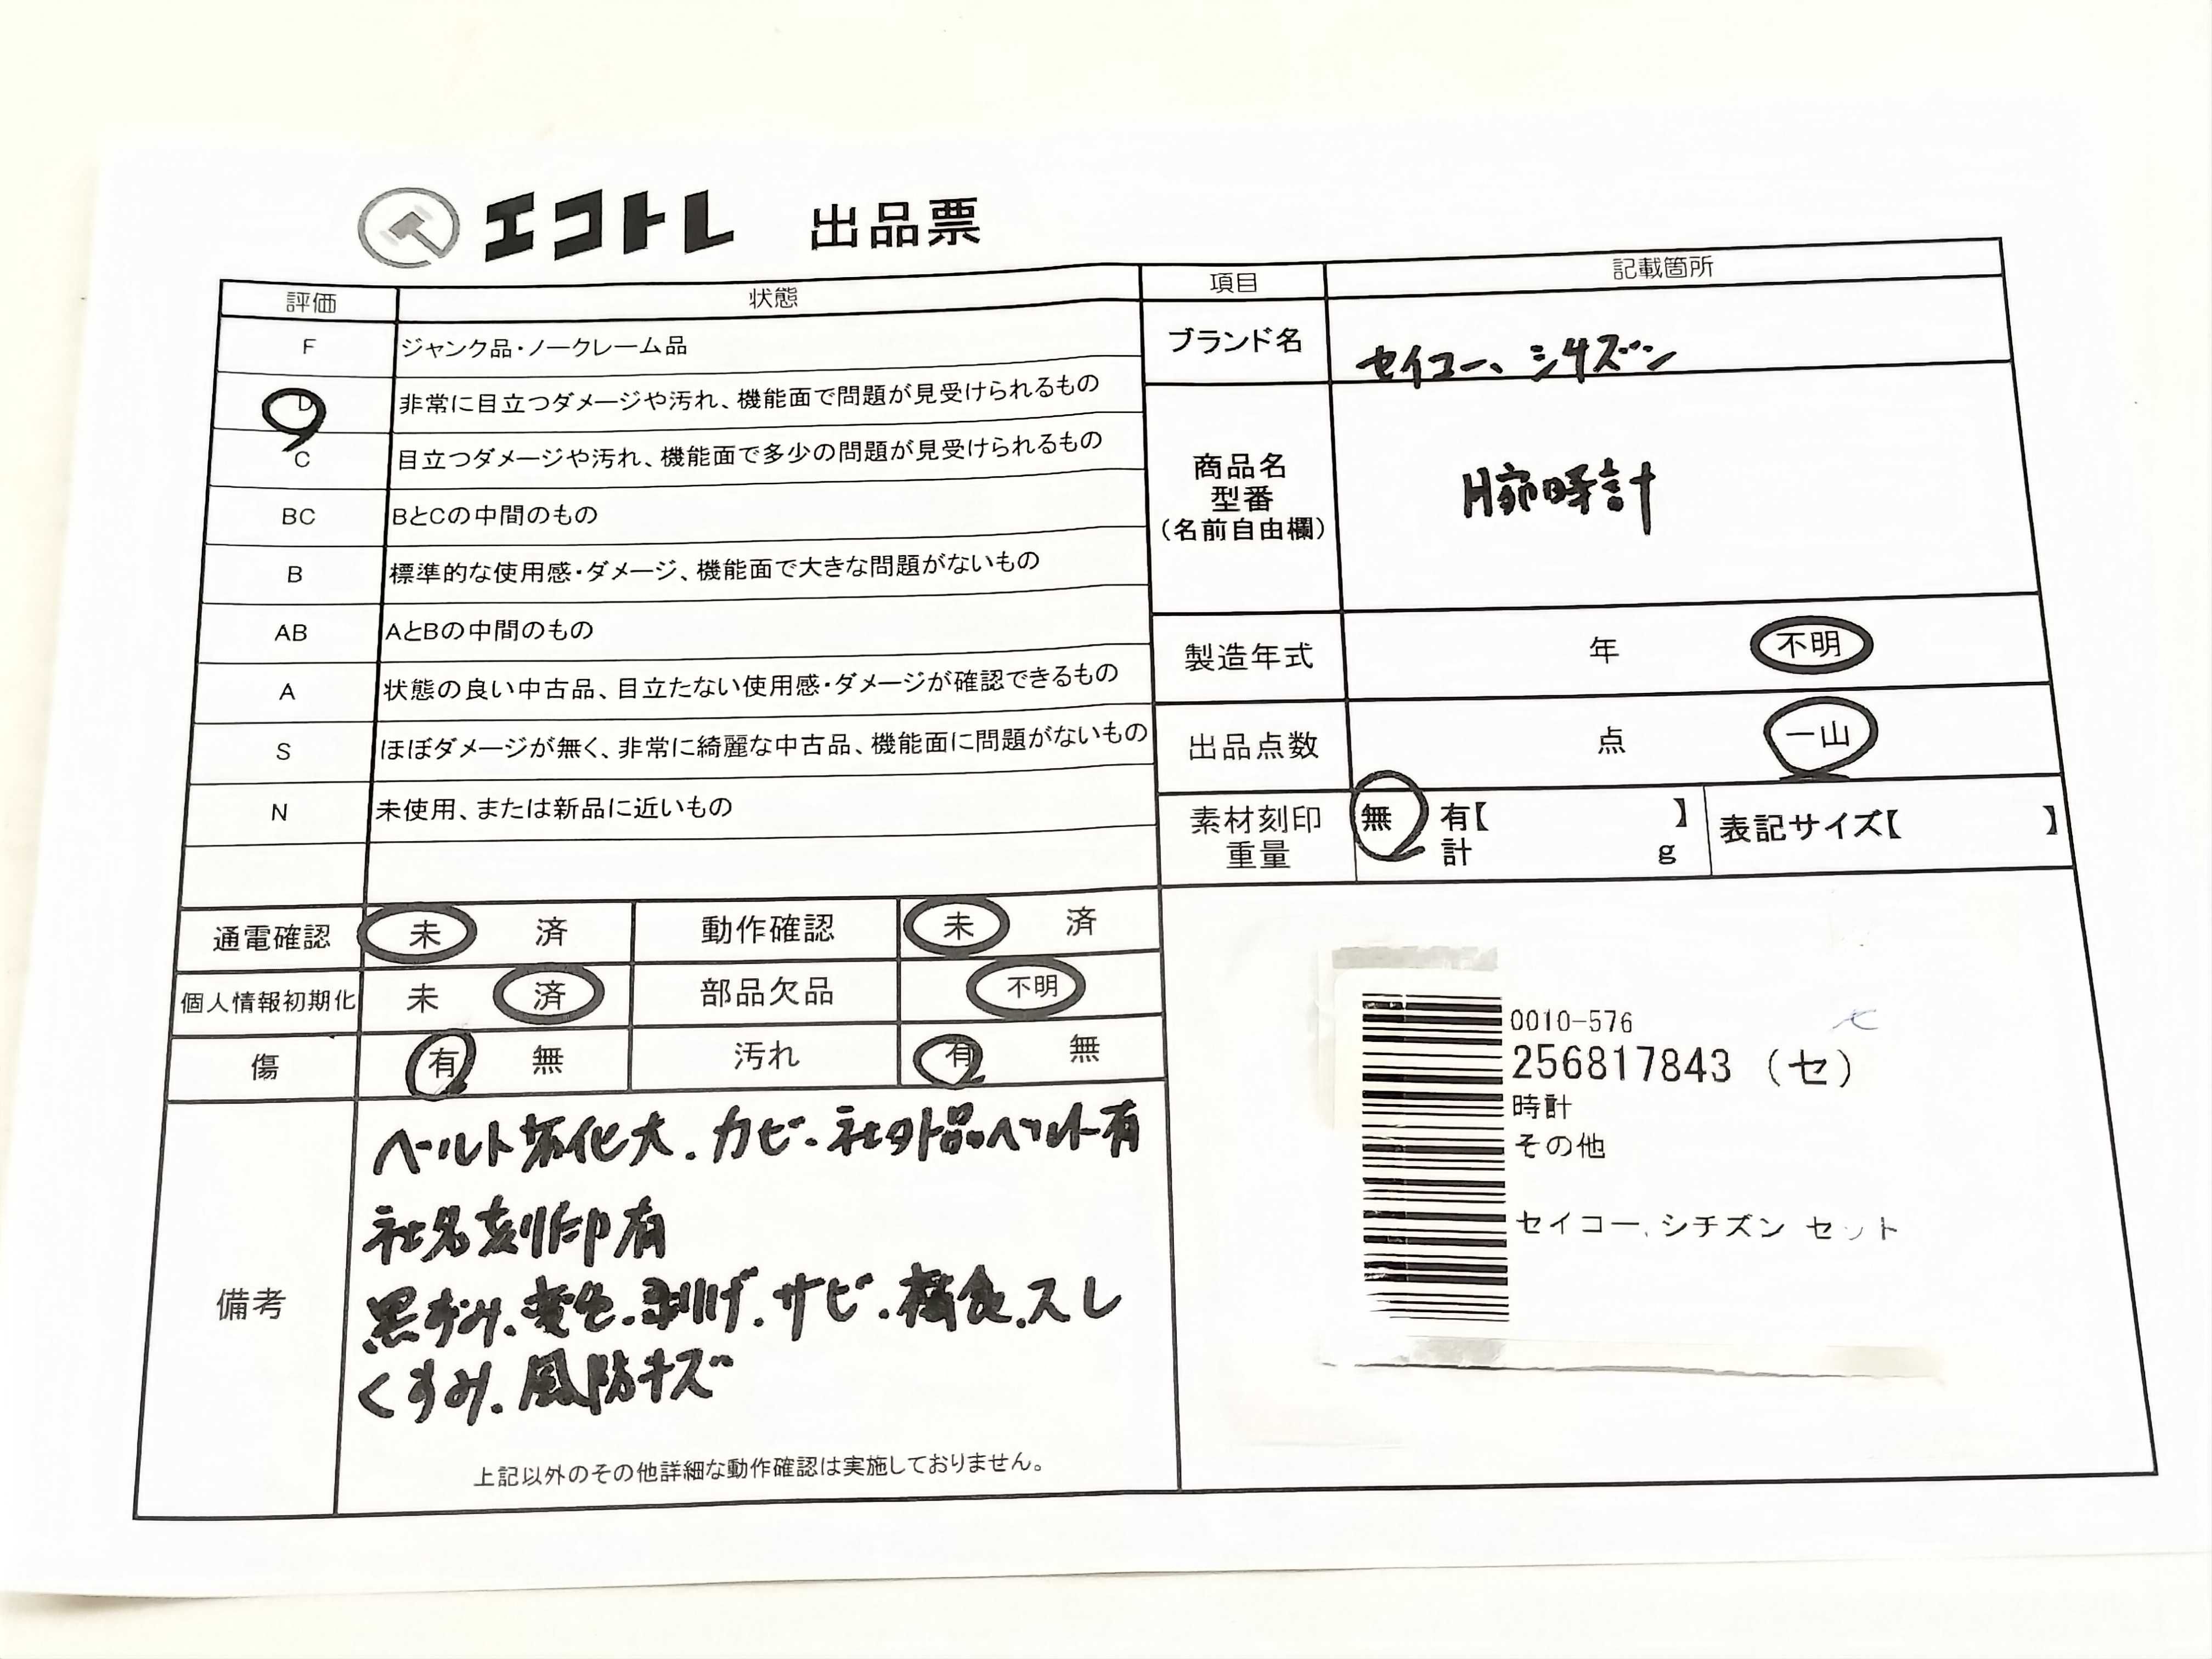 エコトレ 出品票
評価 状態
F ジャンク品・ノークレーム品
D 非常に目立つダメージや汚れ、機能面で問題が見受けられるもの
C 目立つダメージや汚れ、機能面で多少の問題が見受けられるもの
BC BとCの中間のもの
B 標準的な使用感・ダメージ、機能面で大きな問題がないもの
AB AとBの中間のもの
A 状態の良い中古品、目立たない使用感・ダメージが確認できるもの
S ほぼダメージが無く、非常に綺麗な中古品、機能面に問題がないもの
N 未使用、または新品に近いもの
項目 記載箇所
ブランド名 セイコー、シチズン
商品名
型番
(名前自由欄)
腕時計
製造年式 年 不明
出品点数 点 一山
素材刻印 無 有【 】 表記サイズ【 】
重量 計 g
通電確認 未 済 動作確認 未 済
個人情報初期化 未 済 部品欠品 不明
傷 有 無 汚れ 有 無
備考
ベルト劣化大.カビ.社外品ベルト有
社名刻印有
黒ずみ.変色.剥げ.サビ.腐食.スレ
くすみ.風防キズ
上記以外のその他詳細な動作確認は実施しておりません。
0010-576
256817843 (セ)
時計
その他
セイコー、シチズン セット